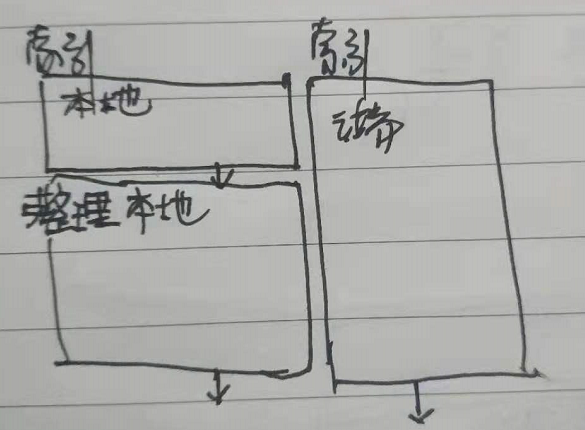 索引
本地
整理本地
索引
云端